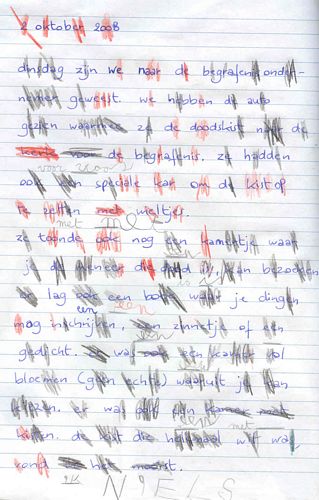 2 oktober 2008
dinsdag zijn we naar de begrafenis onder-
nemer geweest. we hebben de auto
gezien waar ze de doodskist naar de
kerk voor de begrafenis. ze hadden
voor voor
ook een speciale kar om de kist op
te zetten met wieltjes.
met
ze toonde ook nog een kamertje waar
je de meneer die dood is, kan bezoeken
er lag ook een boek waar je dingen
een een
mag inschrijven, een zinnetje of een
gedicht. er was ook een kamer vol
bloemen (geen echte) waaruit je kan
kiezen. er was ook een
met
kisten. de kist die helemaal wit was
vond het mooist.
ik NIELS